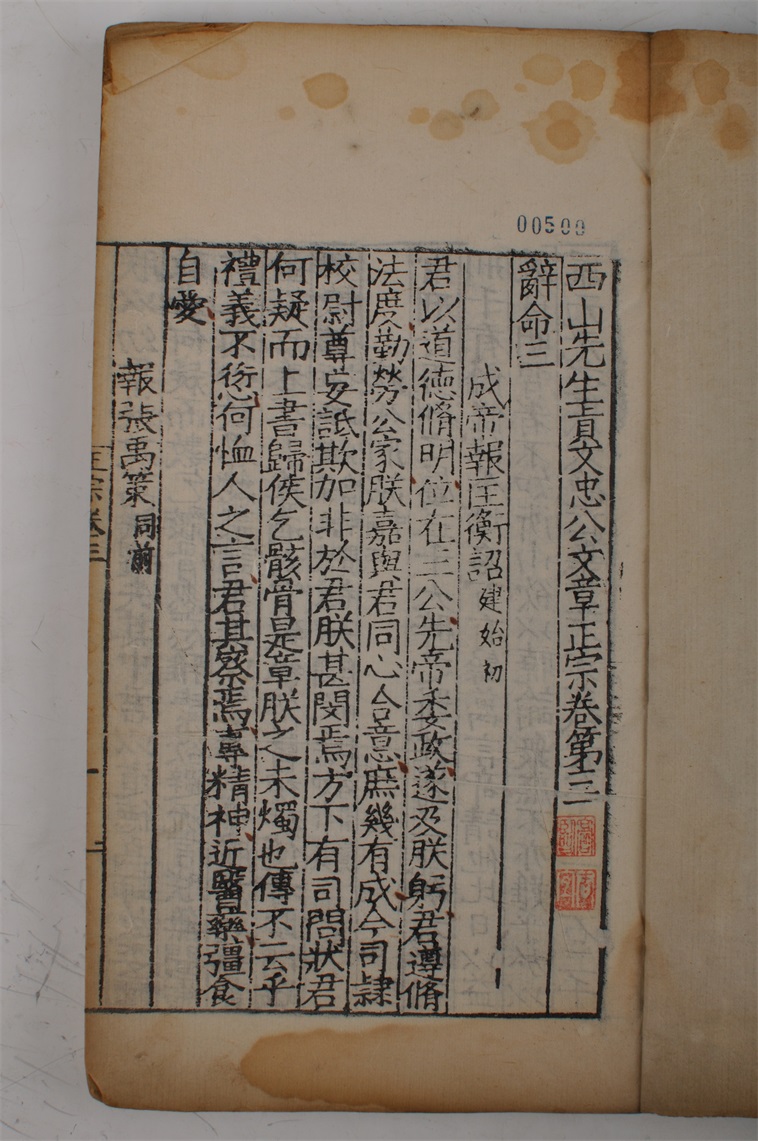 00500
西山先生真文忠公文章正宗卷第三
辭命三
成帝報匡衡詔建始初
君以道德脩明位在三公先帝委政遂及朕躬君遵脩
法度勤勞公家朕嘉與君同心合意庶幾有成今司隷
校尉尊妄詆欺加非於君朕甚閔焉方下有司問狀君
何疑而上書歸侯乞骸骨是章朕之未燭也傳不云乎
禮義不愆何恤人之言君其察焉專精神近醫藥彊食
自愛
報張禹策同前
正宗卷三